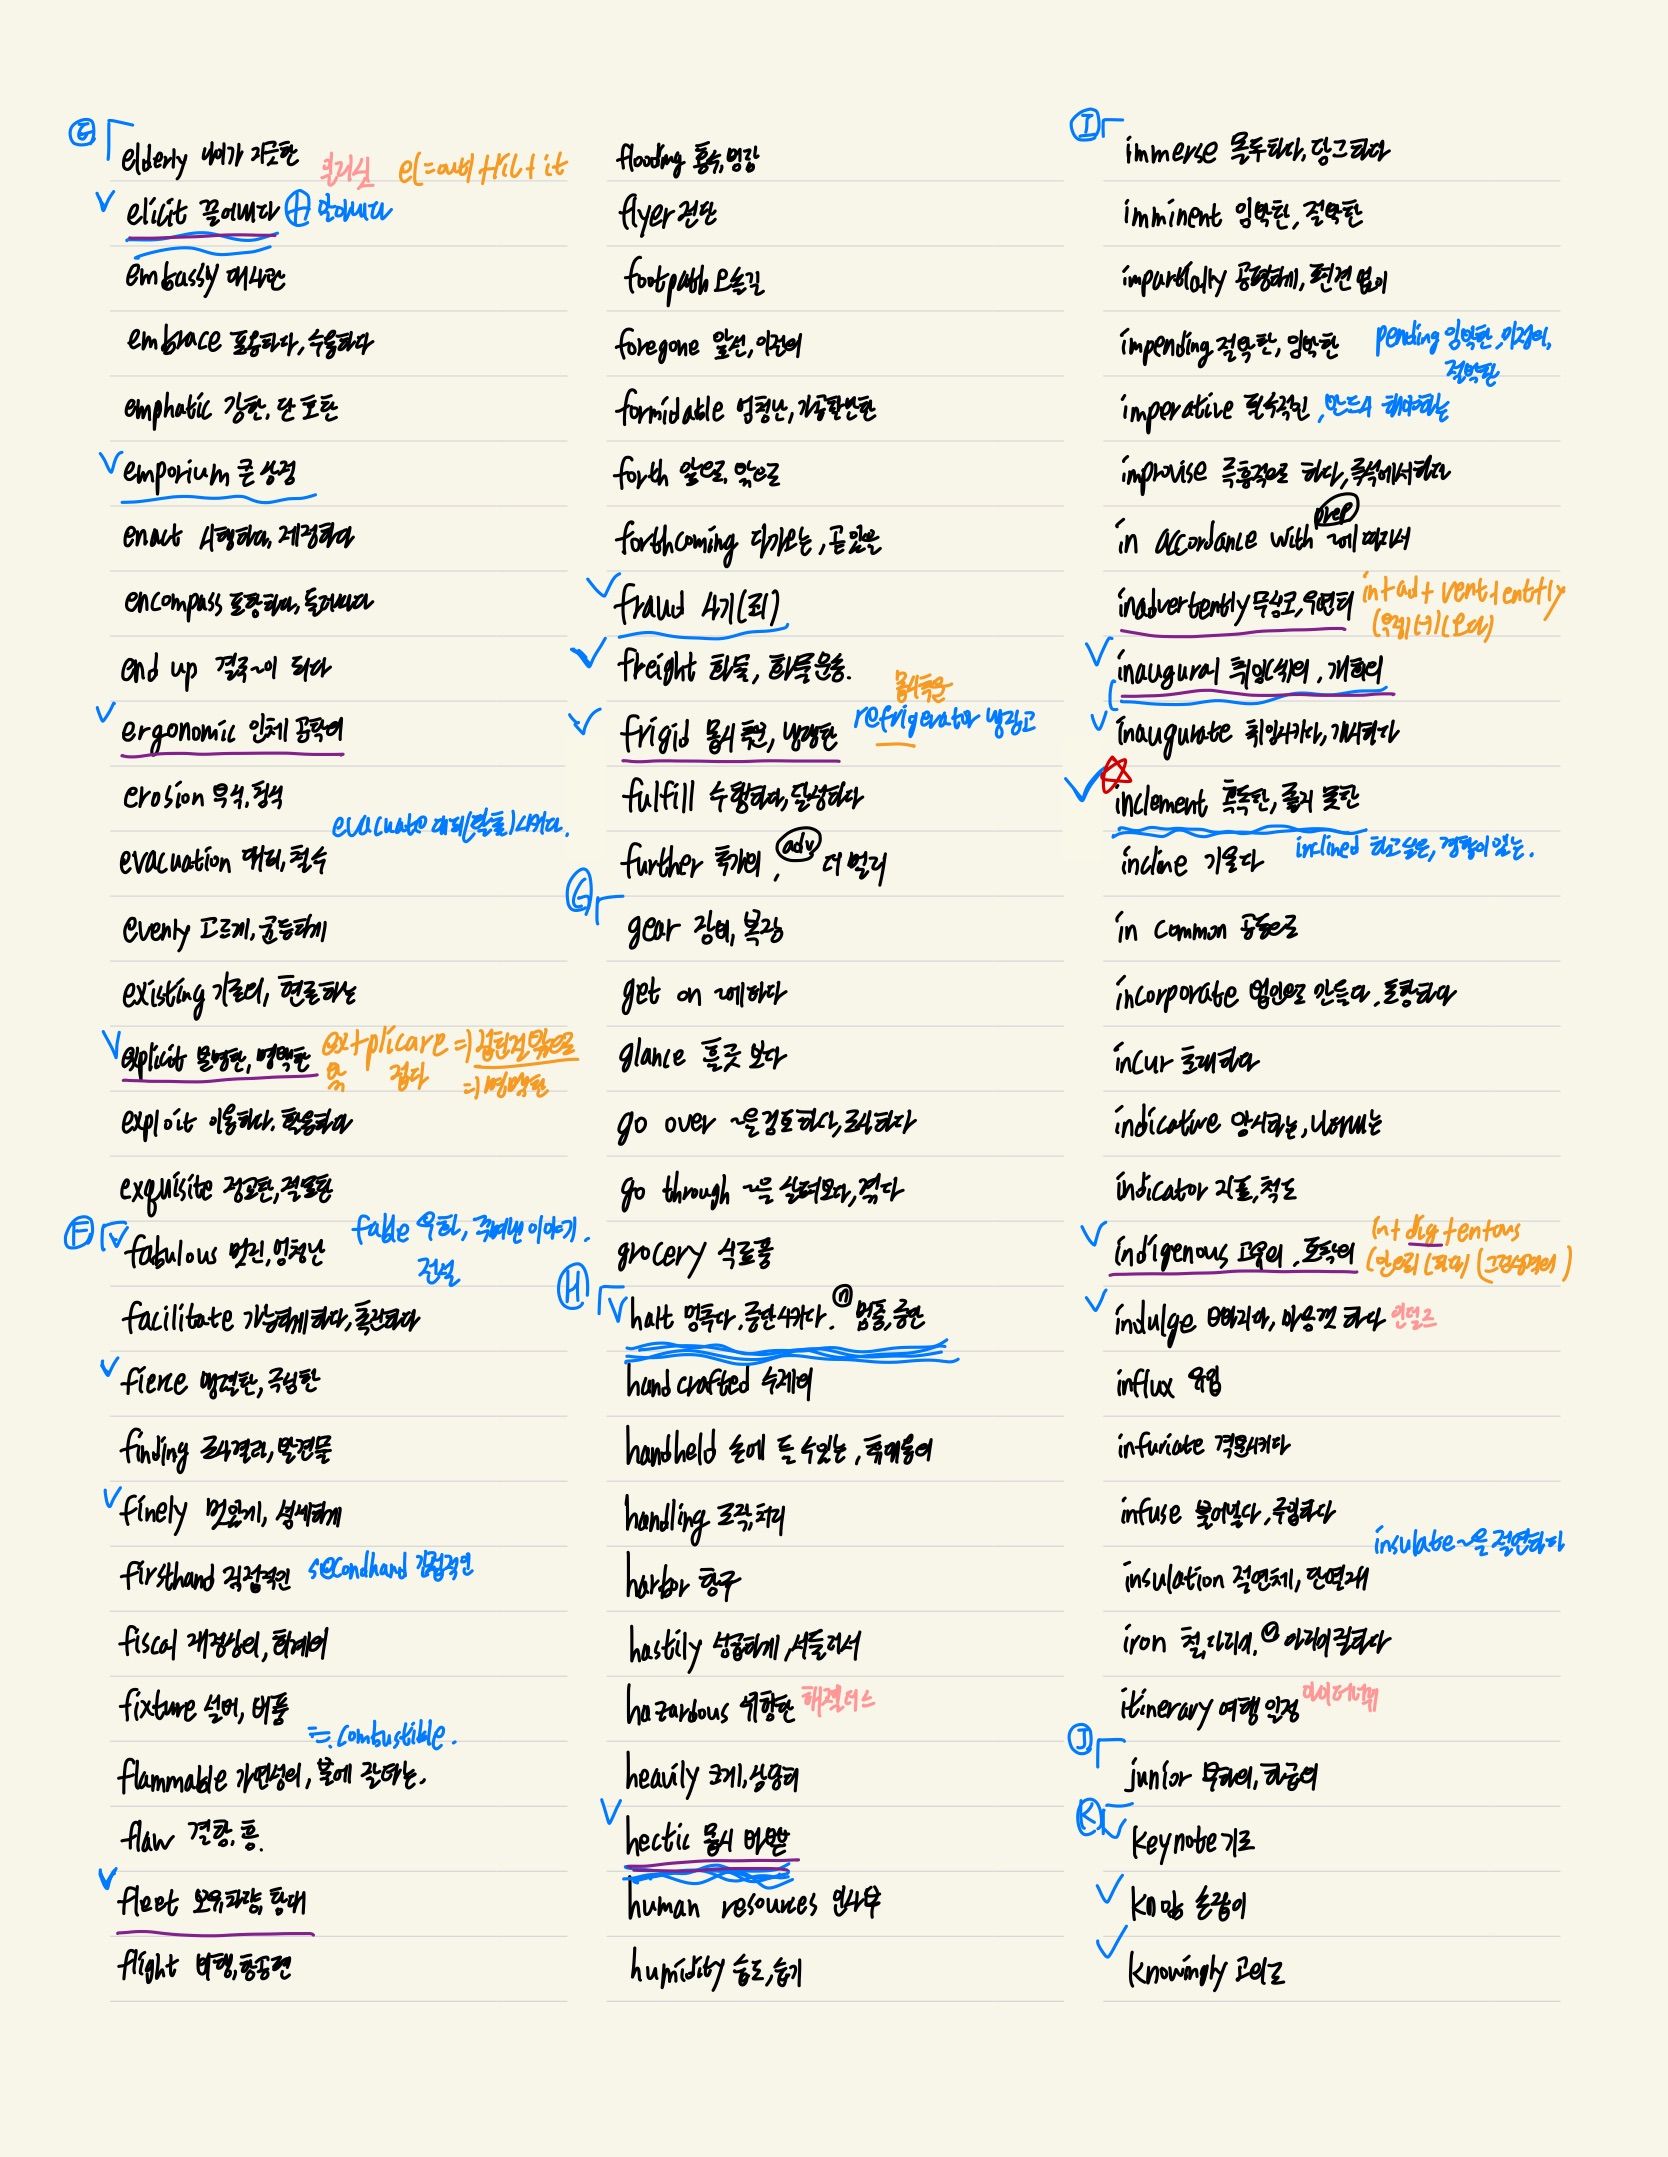 E
elderly 나이가 지긋한
일리싯 e(=out)+lic+it
elicit 끌어내다 + 알아내다
embassy 대사관
embrace 포용하다, 수용하다
emphatic 강한, 단호한
emporium 큰 상점
enact 시행하다, 제정하다
encompass 포함하다, 둘러싸다
end up 결국 ~이 되다
ergonomic 인체 공학의
erosion 부식, 침식
evacuate 대피(탈출)시키다.
evacuation 대피, 철수
evenly 고르게, 균등하게
existing 기존의, 현존하는
explicit 분명한, 명백한 ex+plicare =) 접힌걸 밖으로
밖 접다 =) 명백한
exploit 이용하다, 활용하다
exquisite 정교한, 적묘한
F
fable 우화, 꾸며낸 이야기.
전설
fabulous 멋진, 엄청난
facilitate 가능하게하다, 촉진하다
fierce 맹렬한, 극심한
finding 조사결과, 발견물
finely 멋있게, 섬세하게
firsthand 직접적인 secondhand 간접적인
fiscal 재정상의, 회계의
fixture 설비, 비품
≒ combustible.
flammable 가연성의, 불에 잘타는.
flaw 결함, 흠.
fleet 보유차량, 함대
flight 비행, 항공편
flooding 홍수, 범람
flyer 전단
footpath 오솔길
foregone 앞선, 이전의
formidable 엄청난, 가공할만한
forth 앞으로, 밖으로
forthcoming 다가오는, 곧 있을
fraud 사기(죄)
freight 화물, 화물운송.
몹시추운
frigid 몹시 추운, 냉랭한 refrigerator 냉장고
fulfill 수행하다, 달성하다
further 추가의, adv 더 멀리
G
gear 장비, 복장
get on ~에 타다
glance 흘긋 보다
go over ~을 검토하다, 조사하다
go through ~을 살펴보다, 겪다
grocery 식료품
H
halt 멈추다, 중단시키다. n 멈춤, 중단
handcrafted 수제의
handheld 손에 들 수있는, 휴대용의
handling 조작, 처리
harbor 항구
hastily 성급하게, 서둘러서
hazardous 위험한 해절더스
heavily 크게, 상당히
hectic 몹시 바쁜
human resources 인사부
humidity 습도, 습기
I
immerse 몰두하다, 담그다
imminent 임박한, 절박한
impartially 공평하게, 편견 없이
impending 절박한, 임박한 pending 임박한, 미정의,
절박한
imperative 필수적인, 반드시 해야하는
improvise 즉흥적으로 하다, 즉석에서하다
prep
in accordance with ~에 따라서
inadvertently 무심코, 우연히 in+ad+vent+ently
(오다)
inaugural 취임(식)의, 개회의
inaugurate 취임시키다, 개시하다
inclement 혹독한, 좋지 못한
incline 기울다 inclined 하고싶은, 경향이 있는.
in common 공동으로
incorporate 법인으로 만들다, 포함하다
incur 초래하다
indicative 암시하는, 나타내는
indicator 지표, 척도
indigenous 고유의, 토착의 in+dig+enous
indulge 빠지다, 마음껏 하다 인덜즈
influx 유입
infuriate 격분시키다
infuse 불어넣다, 주입하다
insulate ~을 절연하다
insulation 절연체, 단열재
iron 철, 다리미, v 다리미질하다
itinerary 여행 일정 아이티너래
J
junior 부하의, 하급의
K
keynote 기조
knob 손잡이
knowingly 고의로